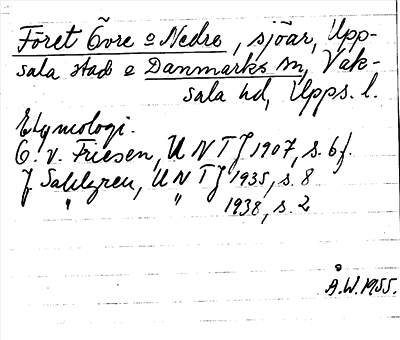 Föret Övre o Nedre, sjöar, Upp-
sala stad o Danmarks sn, Vak-
sala hd, Upps. l.
Etymologi.
O. v. Friesen, UNT 1907, s. 6 f.
J Sahlgren, UNT 1935, s. 8
" " 1938, s. 2
Å.W. 1955.